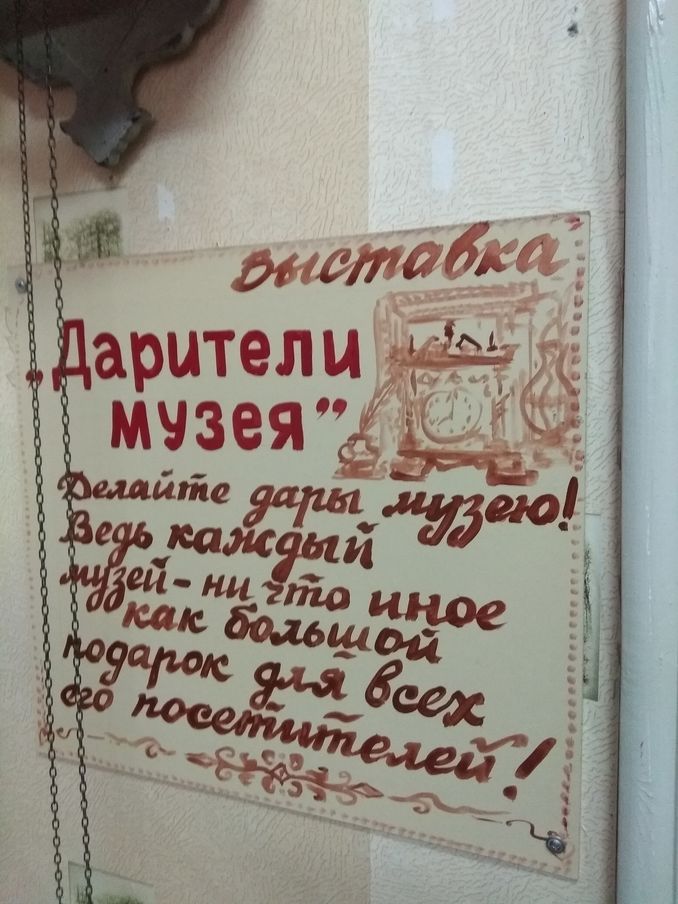 Выставка
„Дарители
музея”
Делайте дары музею!
Ведь каждый
музей - ни что иное
как большой
подарок для всех
его посетителей!